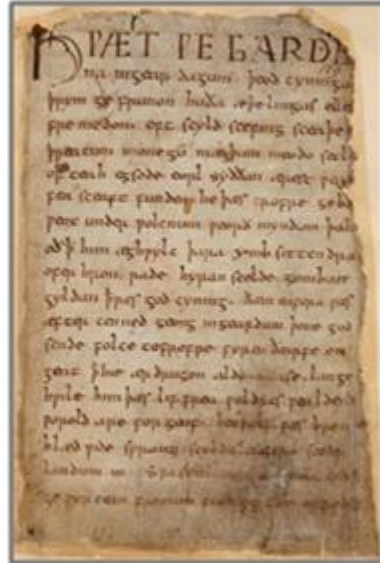 HǷÆT ǷE GARDE
na ingear dagum. þeod cyninga
þrym ge frunon huða æþelingas ellen
fre medon. oft scyld scefing sceaþe
þreatum monegū mægþum meodo setl
of teah egsode eorl syððan ærest ƿearð
fea sceaft funden he þæs frofre geba
ƿeox under ƿolcnum ƿeorð myndum þah
oð þ him æghƿylc þara ymb sittendra
ofer hron rade hyran scolde gomban
gyldan þ ƿæs god cyning. ðæm eafera ƿæs
æfter cenned geong ingeardum þone god
sende folce tofrofre fyren ðearfe on
geat þ hie ær drugon aldor ase. lange
hƿile him þæs lif frea ƿuldres ƿealdend
ƿorold are for geaf. ƿæs breme
blæd ƿide sprang scyldes eafera scede
landum in.